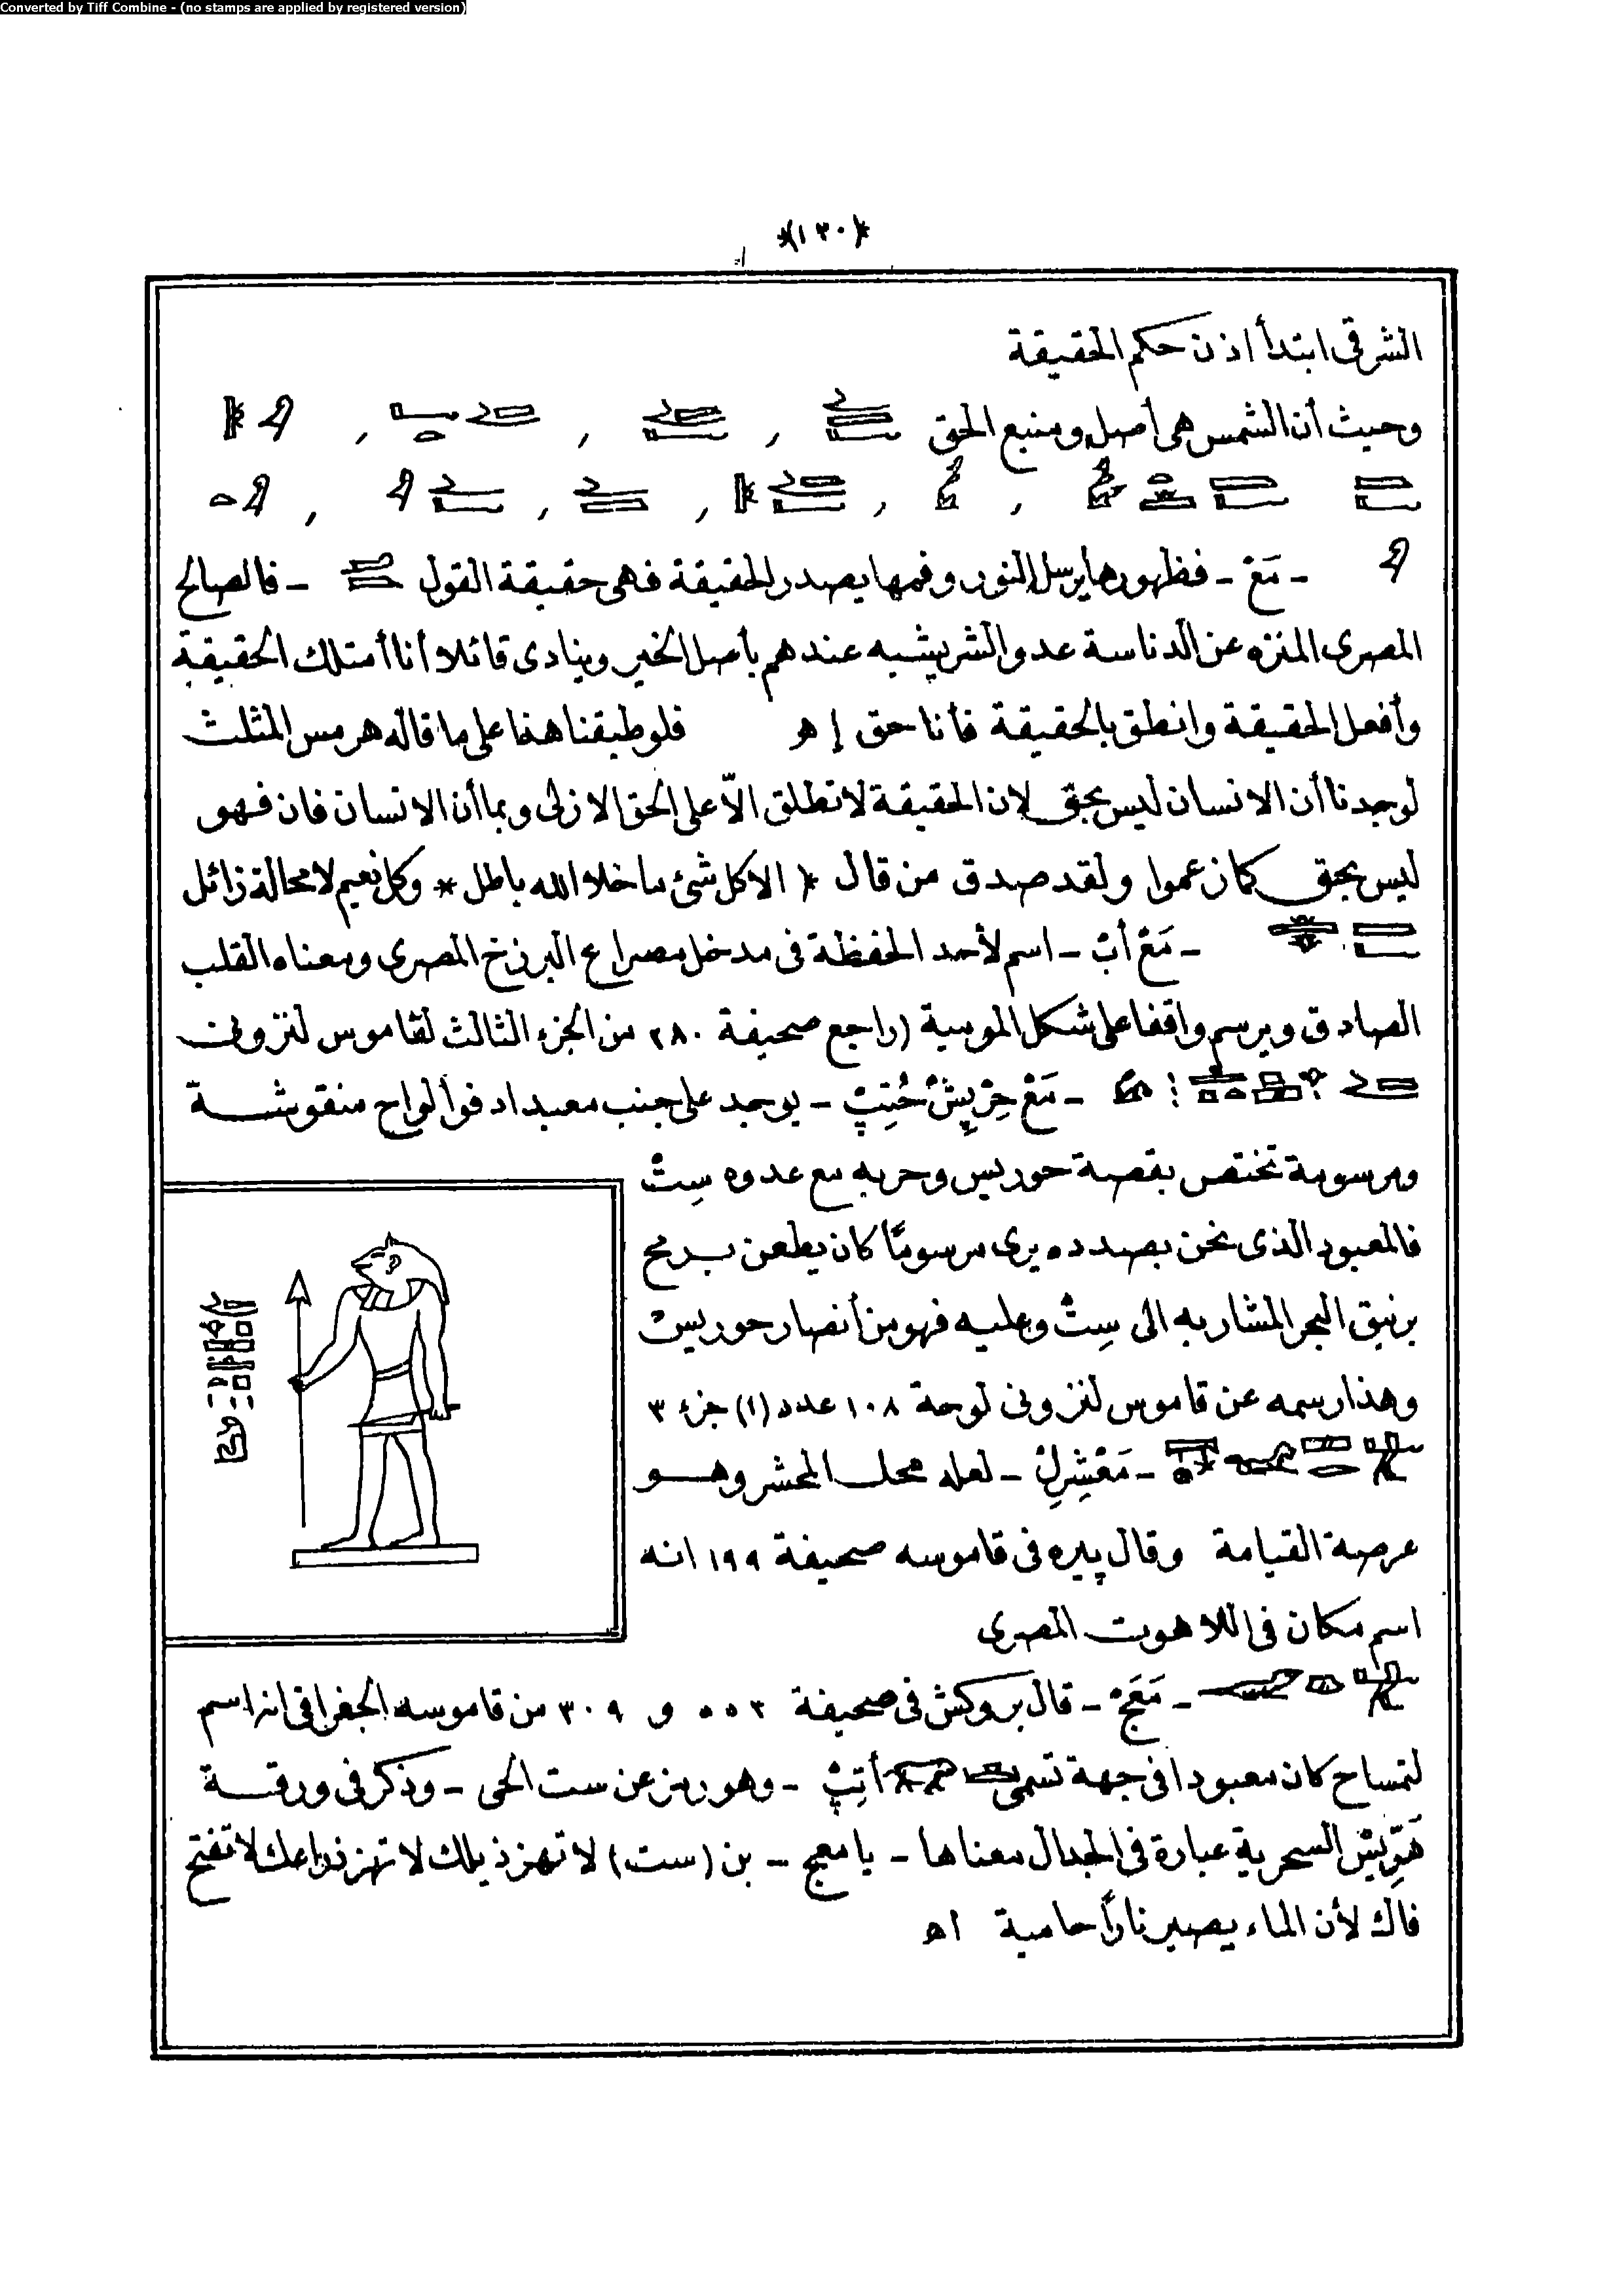 Converted by Tiff Combine - (no stamps are applied by registered version)
*(١٣٠)*
الشرقى ابتدأ اذن حكم الحقيقة
وحيث أن الشمس هى أصل ومنبع الحق
- مَعْ - فظهورها يرسل النور وفمها يصدر الحقيقة فهى حقيقة القول - فالصالح
المصرى المنزه عن الدناسة عدو الشر يشبه عندهم بأصل الخير وينادى قائلا أنا أمتلك الحقيقة
وأفعل الحقيقة وانطق بالحقيقة فأنا حق إ ه فلو طبقنا هذا على ما قاله هرمس المثلث
لوجدنا أن الانسان ليس بحق لان الحقيقة لا تطلق الاّ على الحق الازلى وبما أن الانسان فان فهو
ليس بحق كما زعموا ولقد صدق من قال * الا كل شئ ما خلا الله باطل * وكل نعيم لا محالة زائل
- مَعْ أبْ - اسم لأحد الحفظة فى مدخل مصراع البرزخ المصرى ومعناه القلب
الصادق ويرسم واقفا على شكل الموسية (راجع صحيفة ٢٨٠ من الجزء الثالث لقاموس لنزونى
- مَعْ حِرْ پِشْ حُتِپْ - يوجد على جنب معبد ادفو ألواح منقوشة
ومرسومة تختص بقصة حوريس وحربه مع عدوه سِتْ
فالمعبود الذى نحن بصدده يرى مرسومًا كان يطعن برمح
برنيق البحر المشار به الى سِتْ وعليه فهو من أنصار حوريس
وهذا رسمه عن قاموس لنزونى لوحة ١٠٨ عدد (١) جزء ٣
- مَعْشِرِلْ - لعله محل المحشر وهو
عرصة القيامة وقال پيره فى قاموسه صحيفة ١٩٩ انه
اسم مكان فى اللاهوت المصرى
- مَعَجْ - قال بروكش فى صحيفة ٥٥٢ و ٣٠٩ من قاموسه الجغرافى انه اسم
لتمساح كان معبودا فى جهة تسمى أتِپْ - وهو رمز عن ست الحى - وذكر فى ورقة
هَرِّيسْ السحرية عبارة فى الجدال معناها - يا معج - بن (ست) لا تهز ذيلك لا تهز ذراعك لا تفتح
فاك لأن الماء يصير نارًا حامية اه